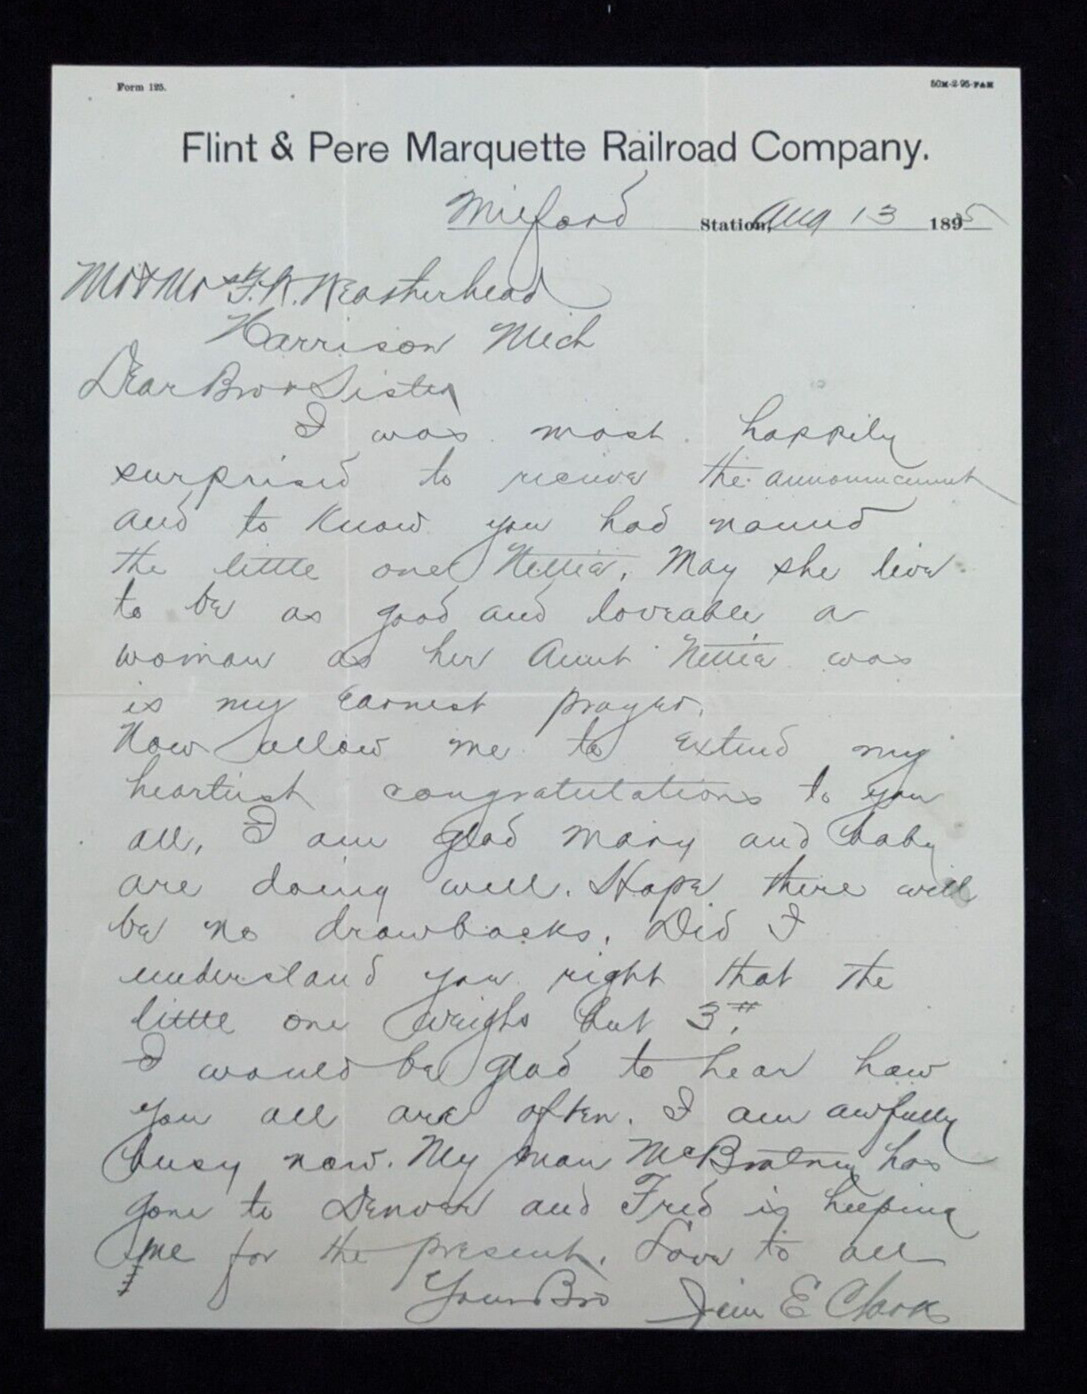 Form 125.
50M-2-95-P&H
Flint & Pere Marquette Railroad Company.
Milford Station, Aug 13 1895
Mr & Mrs F. K. Weatherhead
Harrison Mich
Dear Bro & Sister
I was most happily
surprised to recieve the announcement
and to know you had named
the little one Nettie. May she live
to be as good and loveable a
woman as her Aunt Nettie was
is my earnest prayer.
Now allow me to extend my
heartiest congratulations to you
all, I am glad Mary and baby
are doing well. Hope there will
be no drawbacks. Did I
understand you right that the
little one weighs but 3#.
I would be glad to hear how
you all are often. I am awfully
busy now. My man McBratney has
gone to Denver and Fred is helping
me for the present. Love to all
Your Bro Jim E Clark